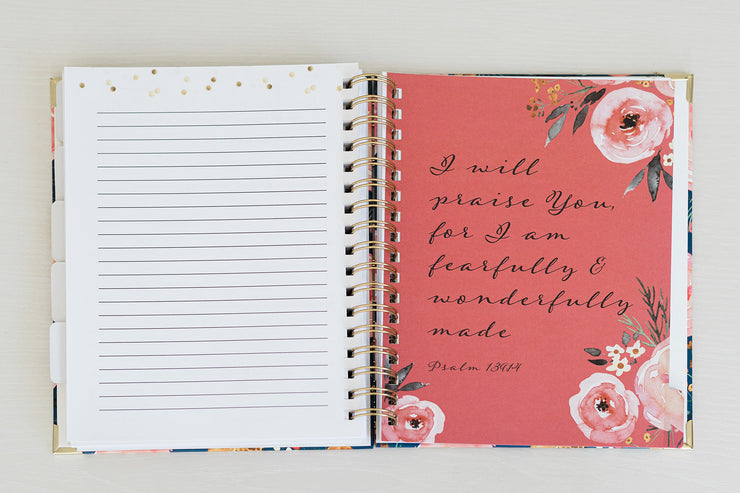 I will
praise You,
for I am
fearfully &
wonderfully
made
Psalm 139:14